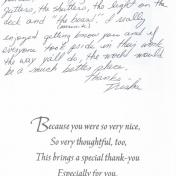 gutters, the shutters, the light on the
deck and "the boau". I really
enjoyed getting know you and if
everyone took pride in they work
the way yall do, the world would
be a much better place.
Thanks
Trisha
Because you were so very nice,
So very thoughtful, too,
This brings a special thank-you
Especially for you.